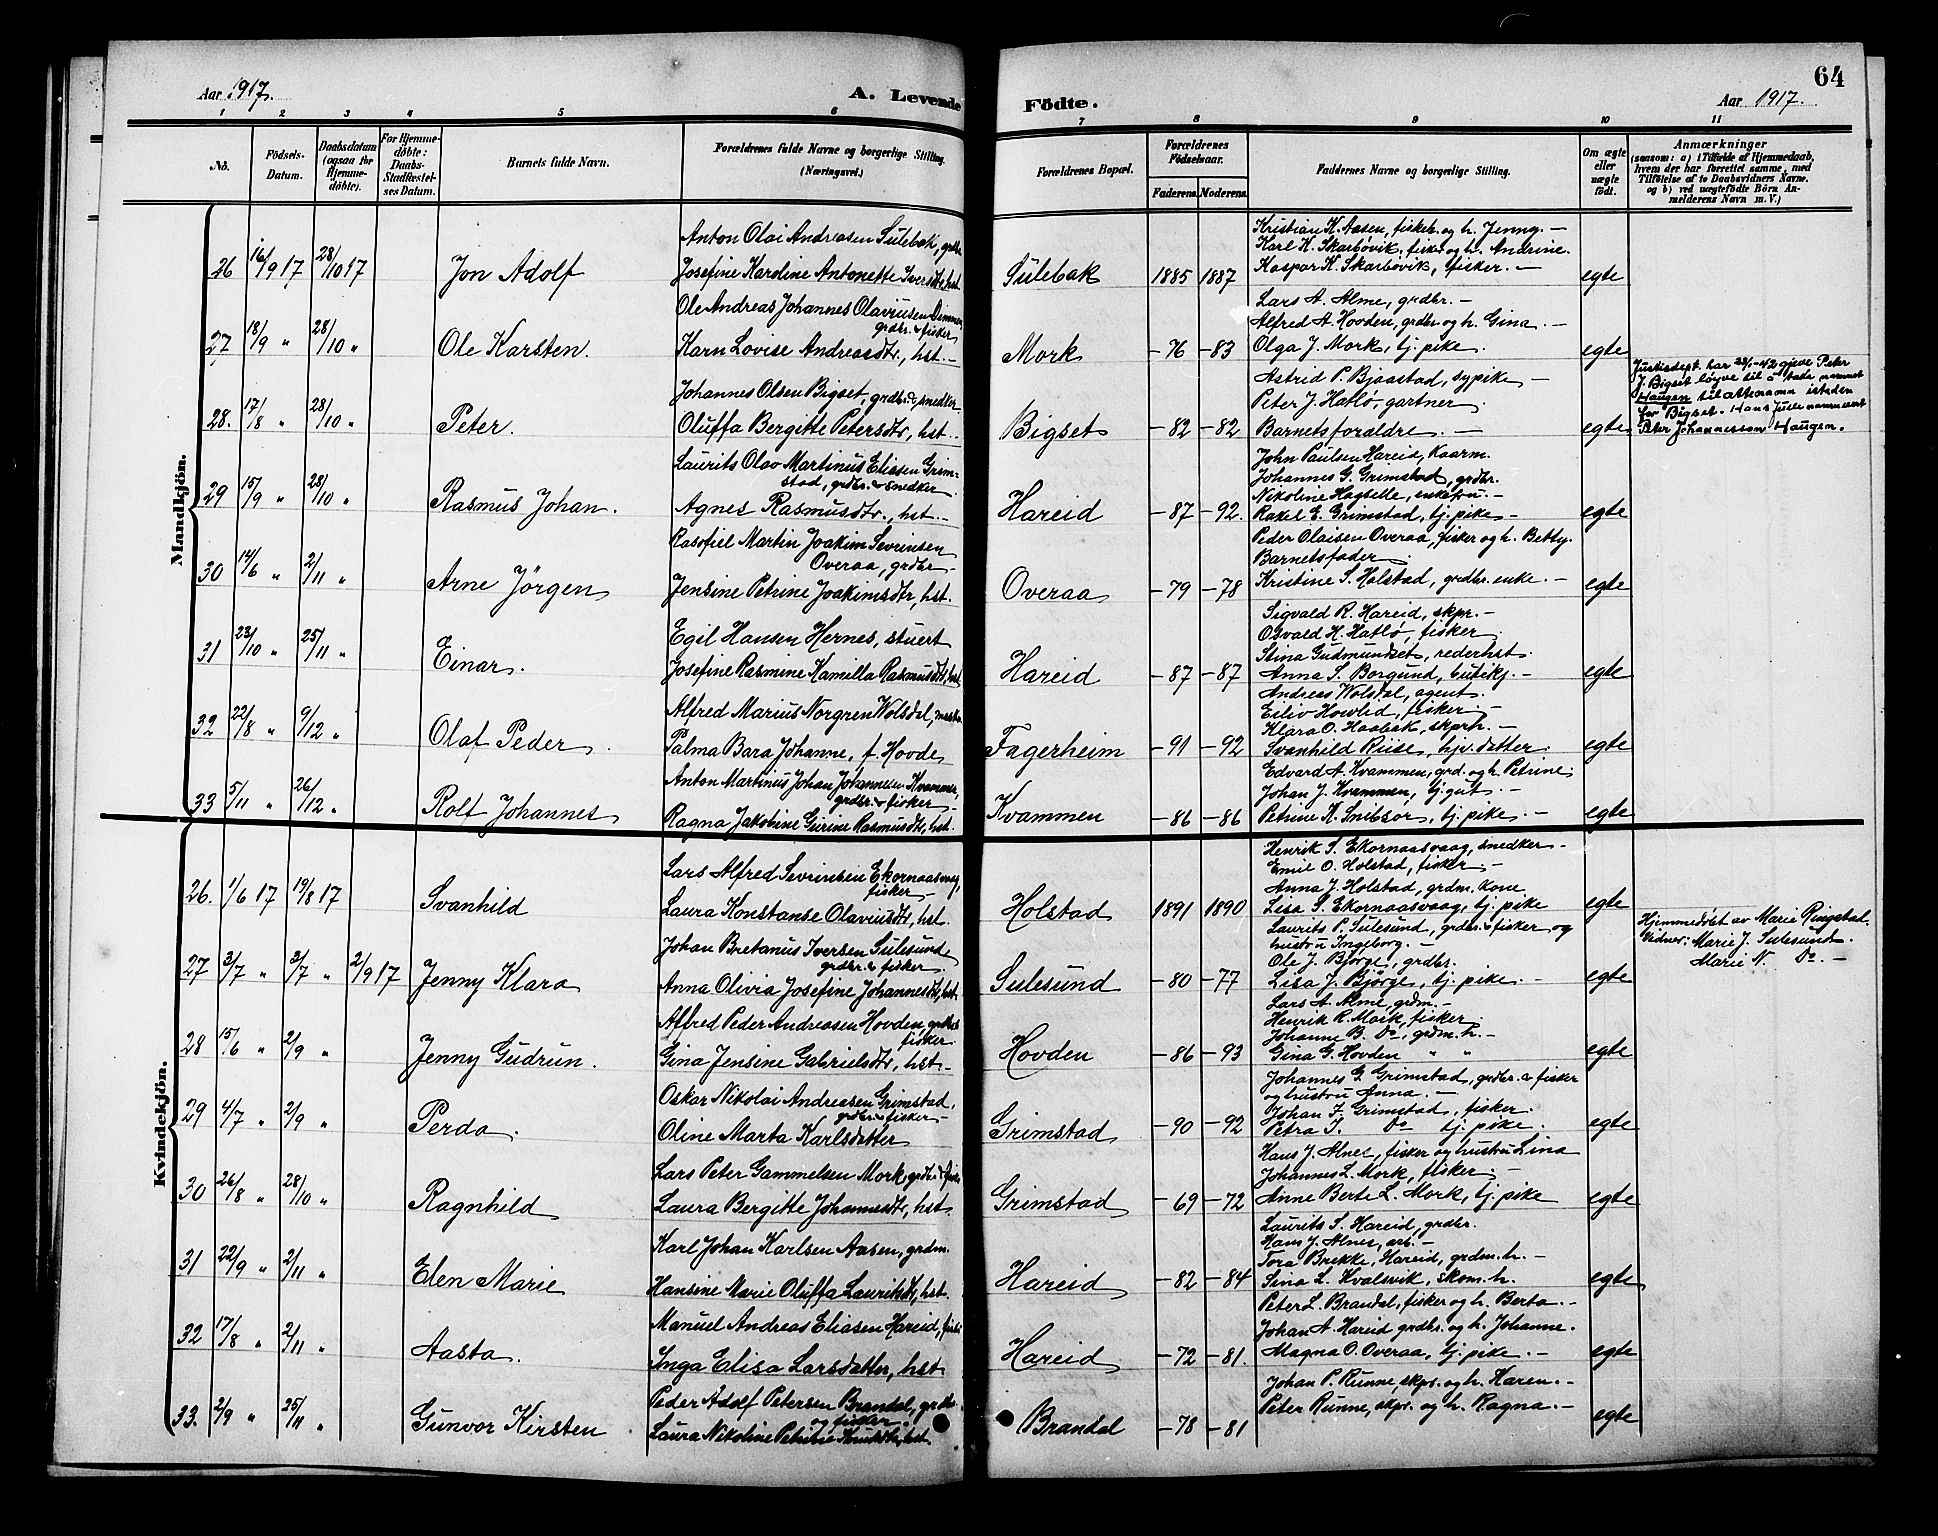 64
Aar 1917.
A. Levende Födte.
Aar 1917.
1 2 3 4 5 6 7 8 9 10 11
No.
Födsels-Datum.
Daabsdatum (ogsaa for Hjemmedöbte).
For Hjemmedöbte: Daabs-Stadfæstelses Datum.
Barnets fulde Navn.
Forældrenes fulde Navne og borgerlige Stilling. (Næringsvei.)
Forældrenes Bopæl.
Forældrenes Födselsaar.
Faderens. Moderens.
Faddernes Navne og borgerlige Stilling.
Om ægte eller uægte födt.
Anmærkninger
(saasom: a) i Tilfælde af Hjemmedaab, hvem der har forrettet samme, med Tilföielse af to Daabsvidners Navne, og b) ved uægtefödte Börn Anmelderens Navn m.V.)
Mandkjön.
26 16/9 17 28/10 17 Jon Adolf
Anton Olai Andreasen Sulebak, grdbr
Josefine Karoline Antonette Iversdtr, hst.
Sulebak 1885 1887
Kristian K. Aasen, fisker og h. Jenny. –
Karl K. Skarbövik, fisker og h. Andrine.
Kaspar K. Skarbövik, fisker. –
egte
27 18/9 " 28/10 " Ole Karsten.
Ole Andreas Johannes Olaviusen Dimmen
grdbr. & fisker
Karn Lovise Andreasdtr., hst. –
Mork –76 –83
Lars A. Alme, grdbr. –
Alfred A. Hovden, grdbr. og h. Gina. –
Olga J. Mork, tj. pike.
egte
28. 17/8 " 28/10 " Peter.
Johannes Olsen Bigset, grdbr. & smedker
Oluffa Bergitte Petersdtr, hst..
Bigset –82 –82
Astrid P. Bjaastad, sypike –
Peter J. Hatlö, gartner
Barnets foraldre. –
egte
Justisdept. har 23/1-42 gjeve Peter
J. Bigset löyve til å taka namnet
Haugen til etternamn istaden
for Bigset. Hans fulle namn er nå
Peter Johannesson Haugen.
29 15/9 " 28/10 " Rasmus Johan.
Laurits Olav Martinus Eliasen Grim-
stad, grdbr. & snedker.
Agnes Rasmusdtr., hst. –
Hareid –87 –92.
John Paulsen Hareid, Kaarm.
Johannes G. Grimstad, grdbr.
Nikoline Hagselle, enkefru. –
Rakel E. Grimstad, tj. pike –
egte
30 14/6 " 2/11 " Arne Jörgen
Rasofiel Martin Joakim Sevrinsen
Overaa, grdbr –
Jensine Petrine Joakimsdtr, hst.
Overaa –79 –78
Peder Olaisen Overaa, fisker og h. Betty.
Barnets fader
Kristine S. Holstad, grdbr. enke. –
egte
31 23/10 " 25/11 " Einar.
Egil Hansen Hernes, stuert
Josefine Rasmine Kamilla Rasmusdtr, hst
Hareid –87 –87
Sigvald R. Hareid, skpr. –
Osvald H. Hatlö, fisker
Stina Gudmundset, rederhst.
Anna S. Borgund, butikj. –
egte
32 22/8 " 9/12 " Olaf Peder
Alfred Marius Norgren Wolsdal,
Palma Bara Johanne, f. Hovde
Fagerheim –91 –92
Andreas Wolsdal, agent.
Eiliv Hovlid, fisker. –
Klara O. Haabak, skprh. –
Svanhild Riise, hjv. datter.
egte
33 5/11 " 26/12 " Rolf Johannes
Anton Martinus Johan Johannesen Kvammen,
grdbr. & fisker –
Ragna Jakobine Gurine Rasmusdtr, hst.
Kvammen –86 –86
Edvard A. Kvammen, grd. og h. Petrine.
Johan J. Kvammen, tj. gut. –
Petrine K. Snibsör, tj. pike. –
egte
Kvindekjön.
26. 1/6 17 19/8 17 Svanhild
Lars Alfred Sevrinsen Ekornaasvaag,
fisker –
Laura Konstanse Olaviusdtr, hst
Holstad 1891 1890
Henrik S. Ekornaasvaag, snedker –
Emil O. Holstad, fisker. –
Anna J. Holstad, grdm. kone
Lisa S. Ekornaasvaag, tj. pike
egte
27 3/7 " 3/7 " 2/9 17 Jenny Klara
Johan Bretanus Iversen Sulesund
grdbr. & fisker.
Anna Olivia Josefine Johannesdtr, hst.
Sulesund –80 –77
Laurits P. Sulesund, grdbr. & fisker og
hustru Ingeborg. –
Ole J. Bjørge, grdbr.
Lisa J. Björge, tj. pike. –
egte
Hjemmedöbt av Marie Ringstad.
Vidner: Marie J. Sulesund.
Marie N. Do. –
28 15/6 " 2/9 " Jenny Gudrun.
Alfred Peder Andreasen Hovden, grdbr&
fisker.
Gina Jensine Gabrielsdtr, hst –
Hovden –86 –93
Lars A. Alme, grdm. –
Henrik R. Mork, fisker.
Johanne B. Do, grdm. h. –
Gina G. Hovden " "
egte
29 4/7 " 2/9 " Perda.
Oskar Nikolai Andreasen Grimstad,
grdbr. & fisker –
Oline Marta Karlsdatter
Grimstad –90 –92
Johannes G. Grimstad, grdbr. & fisker
og hustru Anna. –
Johan F. Grimstad, fisker.
Petra I. Do tj. pike.
egte
30 26/8 " 28/10 " Ragnhild
Lars Peter Gammelsen Mork, grdbr. & fisk
Laura Bergitte Johannesdtr, hst.
Grimstad –69 –72
Hans J. Alnes, fisker og hustru Lina
Johannes L. Mork, fisker. –
Anne Berte L. Mork, tj. pike
egte
31 22/9 " 2/11 " Elen Marie
Karl Johan Karlsen Aasen, grdm.
Hansine Marie Oluffa Lauritsdtr, hst.
Hareid –82 –84
Laurits S. Hareid, grdbr.
Hans J. Alnes, arb. –
Tora Brekke, Hareid, grdm. h. –
Sina L. Kvalsvik, skom. h.
egte
32 17/8 " 2/11 " Aasta.
Manuel Andreas Eliasen Hareid,
Inga Elisa Larsdatter, hst
Hareid –72 –81.
Peter L. Brandal, fisker og h. Berta. –
Johan A. Hareid grdbr. og h. Johanne.
Magna O. Overaa, tj. pike. –
egte
33. 2/9 " 25/11 " Gunvor Kirsten
Peder Adolf Petersen Brandal, grdbr.
og fisker.
Laura Nikoline Petrine Knudsdtr, hst.
Brandal –78 –81
Johan P. Runne, skpr. og h. Karen. –
Peter Runne, skpr. og h. Ragna. –
egte